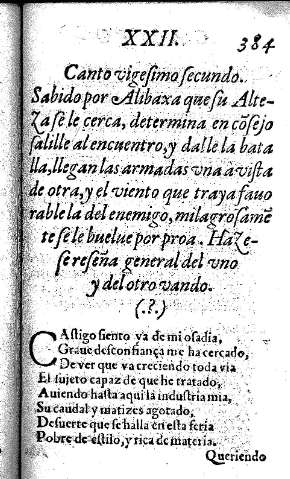 XXII. 384
Canto vigesimo secundo.
Sabido por Alibaxa que su Alte-
za se le cerca, determina en cõsejo
salille al encuentro, y dalle la bata
lla, llegan las armadas vna a vista
de otra, y el viento que traya fauo
rable la del enemigo, milagrosamẽ
te se le buelue por proa. Haze-
se reseña general del vno
y del otro vando.
(.?.)
CAstigo siento ya de mi osadia,
Graue desconfiança me ha cercado,
De ver que va creciendo toda via
El sujeto capaz de que he tratado,
Auiendo hasta aqui la industria mia,
Su caudal y matizes agotado,
Desuerte que se halla en esta feria
Pobre de estilo, y rica de materia.
Queriendo